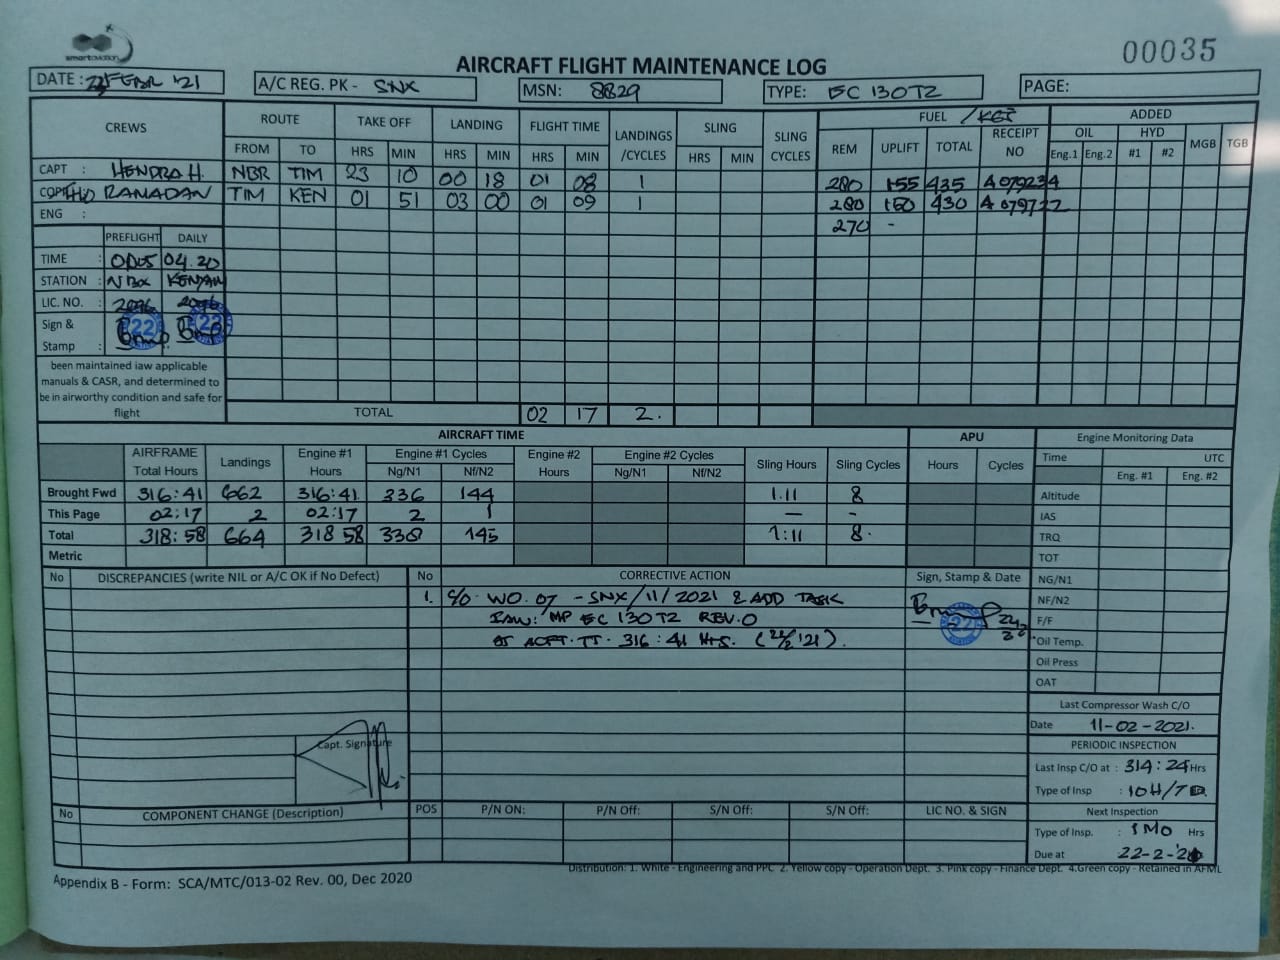 smartaviation
00035
AIRCRAFT FLIGHT MAINTENANCE LOG
DATE : FEBR '21
A/C REG. PK - SNX
MSN: 8829
TYPE: EC 130T2
PAGE:
CREWS ROUTE TAKE OFF LANDING FLIGHT TIME LANDINGS /CYCLES SLING SLING CYCLES FUEL /KGS ADDED
FROM TO HRS MIN HRS MIN HRS MIN HRS MIN REM UPLIFT TOTAL RECEIPT NO OIL HYD MGB TGB
Eng.1 Eng.2 #1 #2
CAPT : HENDRA H. NBR TIM 23 10 00 18 01 08 1 280 155 435 A 079234
RAMADAN TIM KEN 01 51 03 00 01 09 1 280 150 430
ENG : 270 -
PREFLIGHT DAILY
TIME : 04.20
STATION :
LIC. NO. : 2096 2096
Sign &
Stamp :
22 22
been maintained iaw applicable
manuals & CASR, and determined to
be in airworthy condition and safe for
flight
TOTAL 02 17 2.
AIRCRAFT TIME
APU
Engine Monitoring Data
AIRFRAME Total Hours Landings Engine #1 Hours Engine #1 Cycles Engine #2 Hours Engine #2 Cycles Sling Hours Sling Cycles Hours Cycles
Ng/N1 Nf/N2 Ng/N1 Nf/N2
Time UTC
Eng. #1 Eng. #2
Brought Fwd 316:41 662 316:41. 336 144 1.11 8
This Page 02:17 2 02:17 2 1 — -
Total 318:58 664 318 58 338 145 1:11 8.
Metric
Altitude
IAS
TRQ
TOT
NG/N1
NF/N2
F/F
Oil Temp.
Oil Press
OAT
No DISCREPANCIES (write NIL or A/C OK if No Defect)
No CORRECTIVE ACTION Sign, Stamp & Date
1. C/O WO. 07 - SNX/11/2021 & ADD TASK
IAW: MP EC 130T2 REV.0
AT ACFT.TT. 316:41 HRS. (22/2 '21).
22
Capt. Signature
Last Compressor Wash C/O
Date 11-02-2021.
PERIODIC INSPECTION
Last Insp C/O at : 314:24 Hrs
Type of Insp : 10H/7D
Next Inspection
Type of Insp. : 1 MO Hrs
Due at 22-2-21
No COMPONENT CHANGE (Description) POS P/N ON: P/N Off: S/N Off: S/N Off: LIC NO. & SIGN
Distribution: 1. White - Engineering and PPC 2. Yellow copy - Operation Dept. 3. Pink copy - Finance Dept. 4.Green copy - Retained in AFML
Appendix B - Form: SCA/MTC/013-02 Rev. 00, Dec 2020